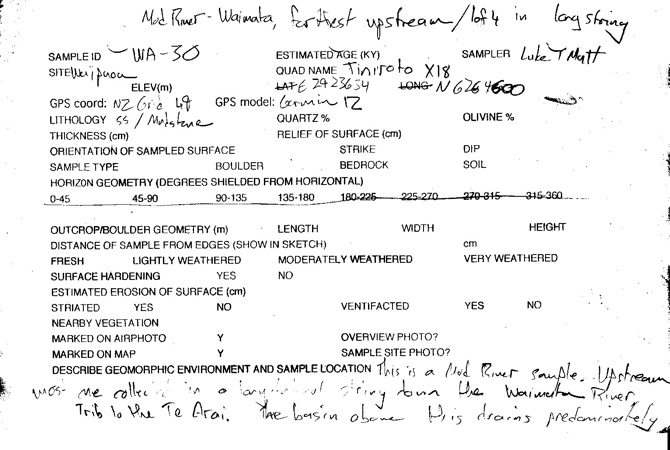 Mod River - Waimata, farthest upstream / 1 of 4 in long string
SAMPLE ID WA-30 ESTIMATED AGE (KY) SAMPLER Luke T Matt
SITE Waipaoa QUAD NAME Tiniroto X18
ELEV(m) LAT E 2923634 LONG N 6264600
GPS coord: NZ Grid 49 GPS model: Garmin 12
LITHOLOGY SS / Mudstone QUARTZ % OLIVINE %
THICKNESS (cm) RELIEF OF SURFACE (cm)
ORIENTATION OF SAMPLED SURFACE STRIKE DIP
SAMPLE TYPE BOULDER BEDROCK SOIL
HORIZON GEOMETRY (DEGREES SHIELDED FROM HORIZONTAL)
0-45 45-90 90-135 135-180 180-225 225-270 270-315 315-360
OUTCROP/BOULDER GEOMETRY (m) LENGTH WIDTH HEIGHT
DISTANCE OF SAMPLE FROM EDGES (SHOW IN SKETCH) cm
FRESH LIGHTLY WEATHERED MODERATELY WEATHERED VERY WEATHERED
SURFACE HARDENING YES NO
ESTIMATED EROSION OF SURFACE (cm)
STRIATED YES NO VENTIFACTED YES NO
NEARBY VEGETATION
MARKED ON AIRPHOTO Y OVERVIEW PHOTO?
MARKED ON MAP Y SAMPLE SITE PHOTO?
DESCRIBE GEOMORPHIC ENVIRONMENT AND SAMPLE LOCATION This is a Mod River sample. Upstream
most we collected in a longitudinal string down the Waimata River,
Trib to the Te Arai. The basin above this drains predominately